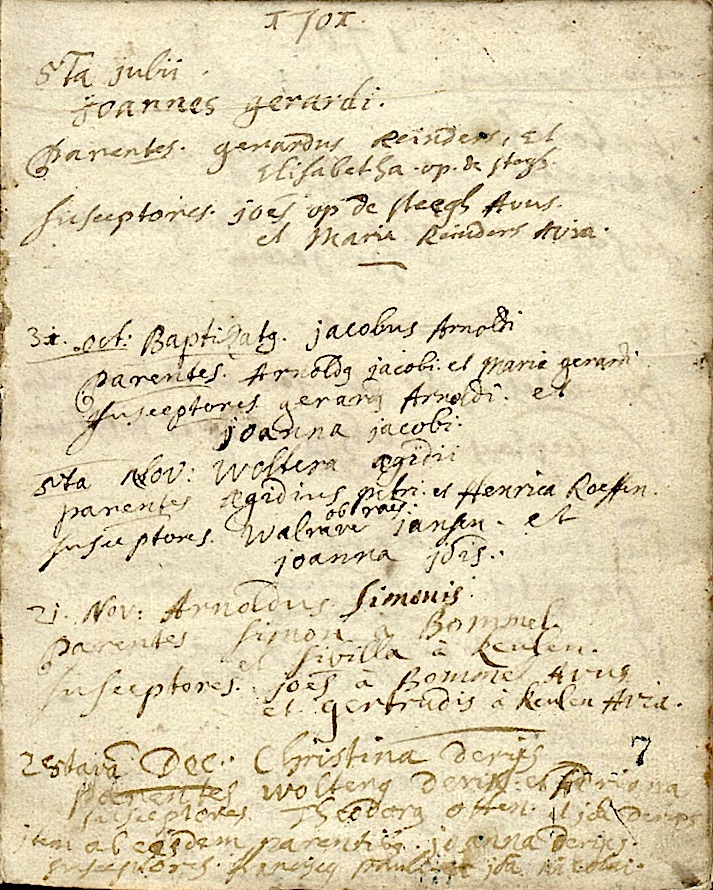 1701.
5ta julii.
joannes gerardi.
parentes. gerardus Reinders, et
Elisabetha. op. de stegh.
susceptores. joes op de steegh Avus.
et Maria Reinders Avia.
31. oct: Baptizatg. jacobus Arnoldi
parentes. Arnoldg jacobi. et Maria gerardi
susceptores gerard Arnoldi. et
joanna jacobi.
5ta Nov: Woltera ægidii
parentes ægidius petri. et Henrica Roeffen.
susceptores. Walrave jansen. et
joanna jois.
21. Nov: Arnoldus Simonis
parentes Simon à Bommel.
et Sivilla à keulen.
susceptores. joes à Bommel Avus
et gertrudis à keulen Avia.
7
Dec. Christina derijs
parentes wolterg derix. et Adriana
susceptores. Theodorg otten. et joa
item ab eisdem parentibg. joanna derijs.
susceptores. franciscg et joa nicolai.